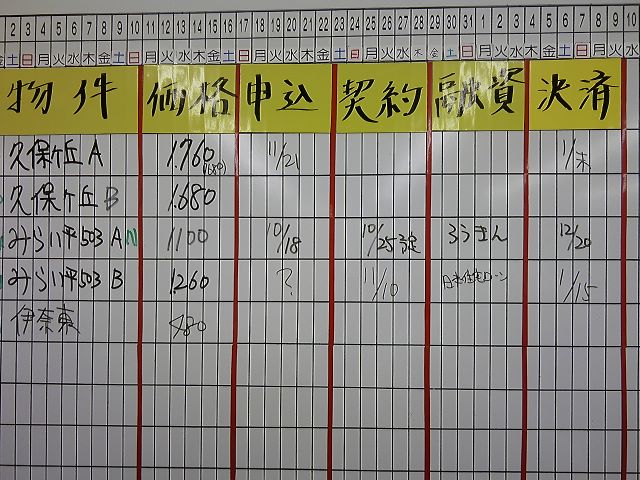 2 3 4 5 6 7 8 9 10 11 12 13 14 15 16 17 18 19 20 21 22 23 24 25 26 27 28 29 30 31 1 2 3 4 5 6 7 8 9 10
金 土 日 月 火 水 木 金 土 日 月 火 水 木 金 土 日 月 火 水 木 金 土 日 月 火 水 木 金 土 日 月 火 水 木 金 土 日 月 火 水
物件 価格 申込 契約 融資 決済
久保ヶ丘 A 1.760 (1680) 11/21 1/末
久保ヶ丘 B 1.680
みらい平503 A N 1100 10/18 10/25 予定 ろうきん 12/20
みらい平503 B 1.260 ? 11/10 日本住宅ローン 1/15
伊奈東 480